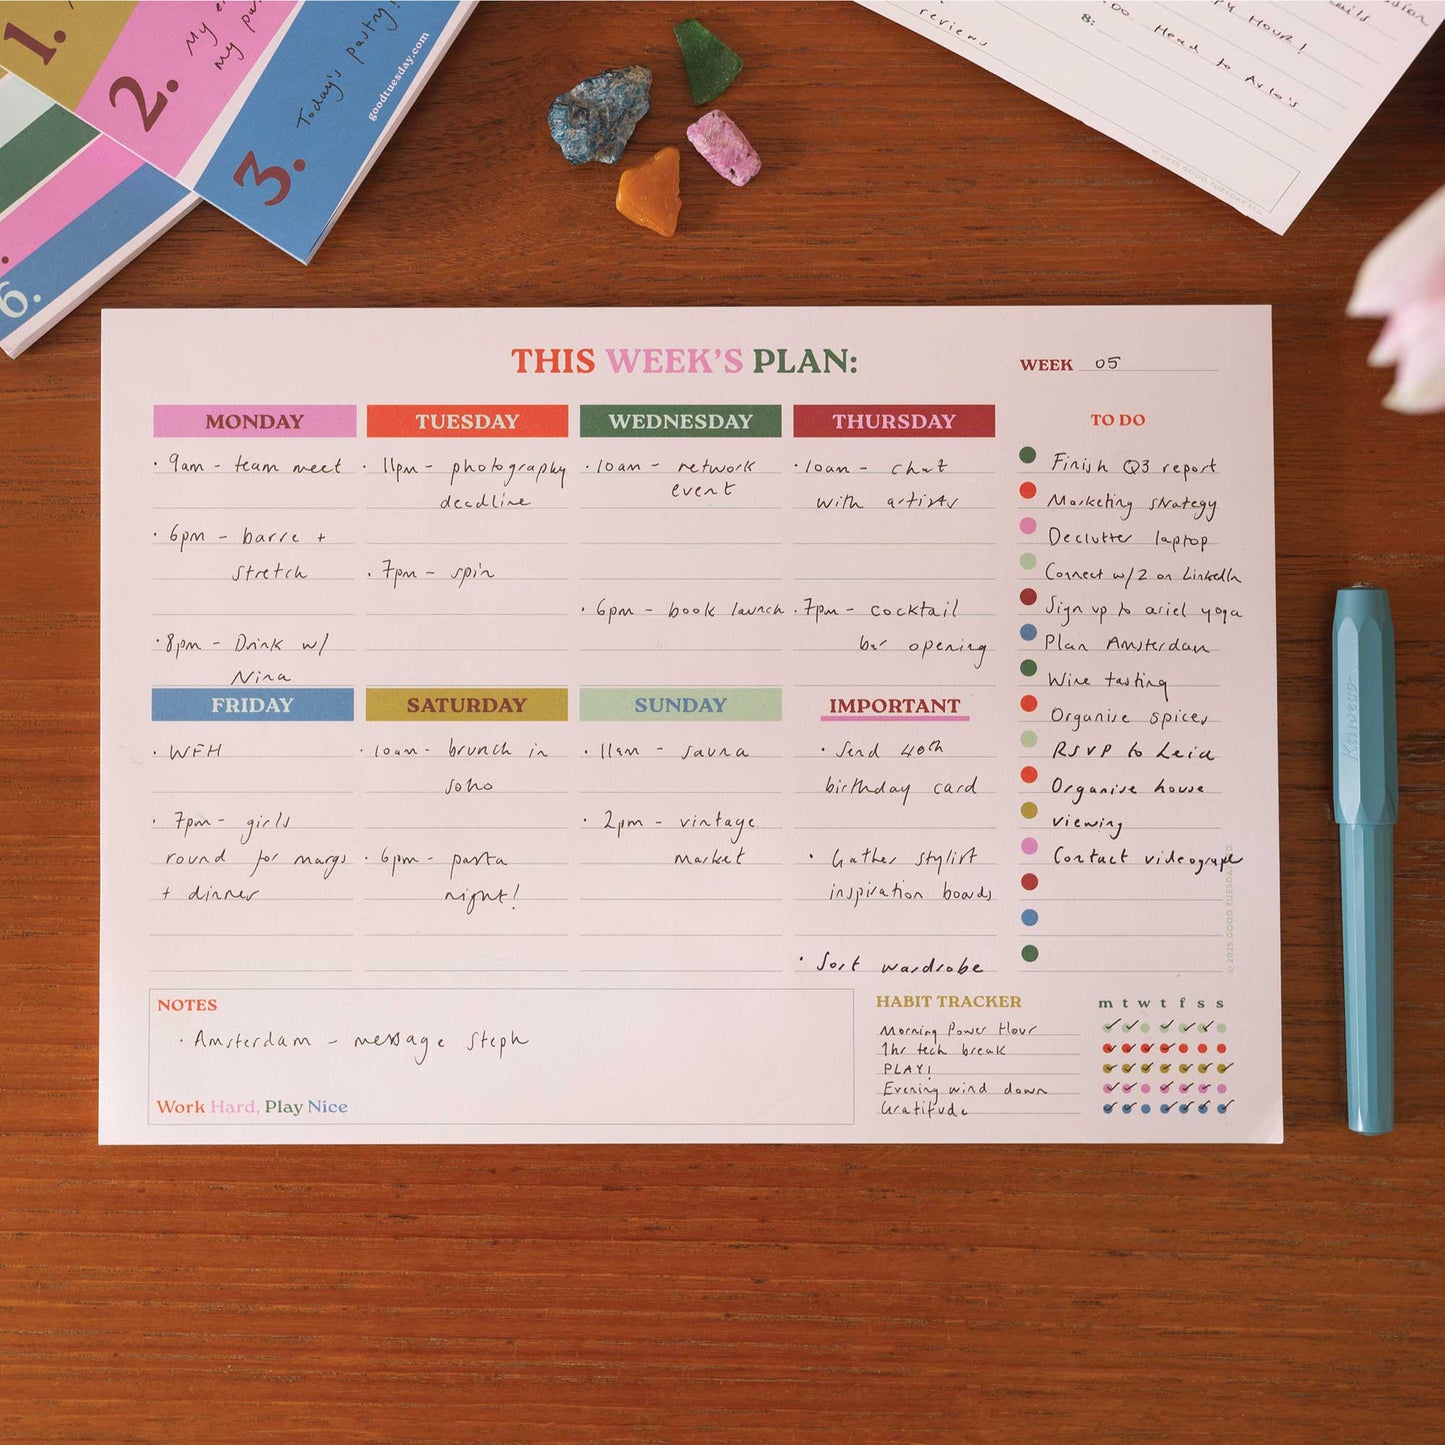 1.
2.
My
my
3.
Today's pasty!
goodtuesday.com
6.
reviews
8:
Head to Arlo's
Hour!
© 2025 GOOD TUESDAY LTD
THIS WEEK'S PLAN:
WEEK 05
MONDAY
· 9am - team meet
· 6pm - barre +
stretch
· 8pm - Drink w/
Nina
TUESDAY
· 11pm - photography
deadline
· 7pm - spin
WEDNESDAY
· 10am - network
event
· 6pm - book launch
THURSDAY
· 10am - chat
with artists
· 7pm - cocktail
bar opening
FRIDAY
· WFH
· 7pm - girls
round for margs
+ dinner
SATURDAY
· 10am - brunch in
soho
· 6pm - pasta
night!
SUNDAY
· 11am - sauna
· 2pm - vintage
market
IMPORTANT
· Send 40th
birthday card
· Gather stylist
inspiration boards
· Sort wardrobe
TO DO
Finish Q3 report
Marketing strategy
Declutter laptop
Connect w/ 2 on LinkedIn
Sign up to ariel yoga
Plan Amsterdam
Wine tasting
Organise spices
RSVP to Leia
Organise house
viewing
Contact videographe
© 2025 GOOD TUESDAY LTD
NOTES
· Amsterdam - message Steph
Work Hard, Play Nice
HABIT TRACKER m t w t f s s
Morning Power Hour
1hr tech break
PLAY!
Evening wind down
Gratitude
Kaweco